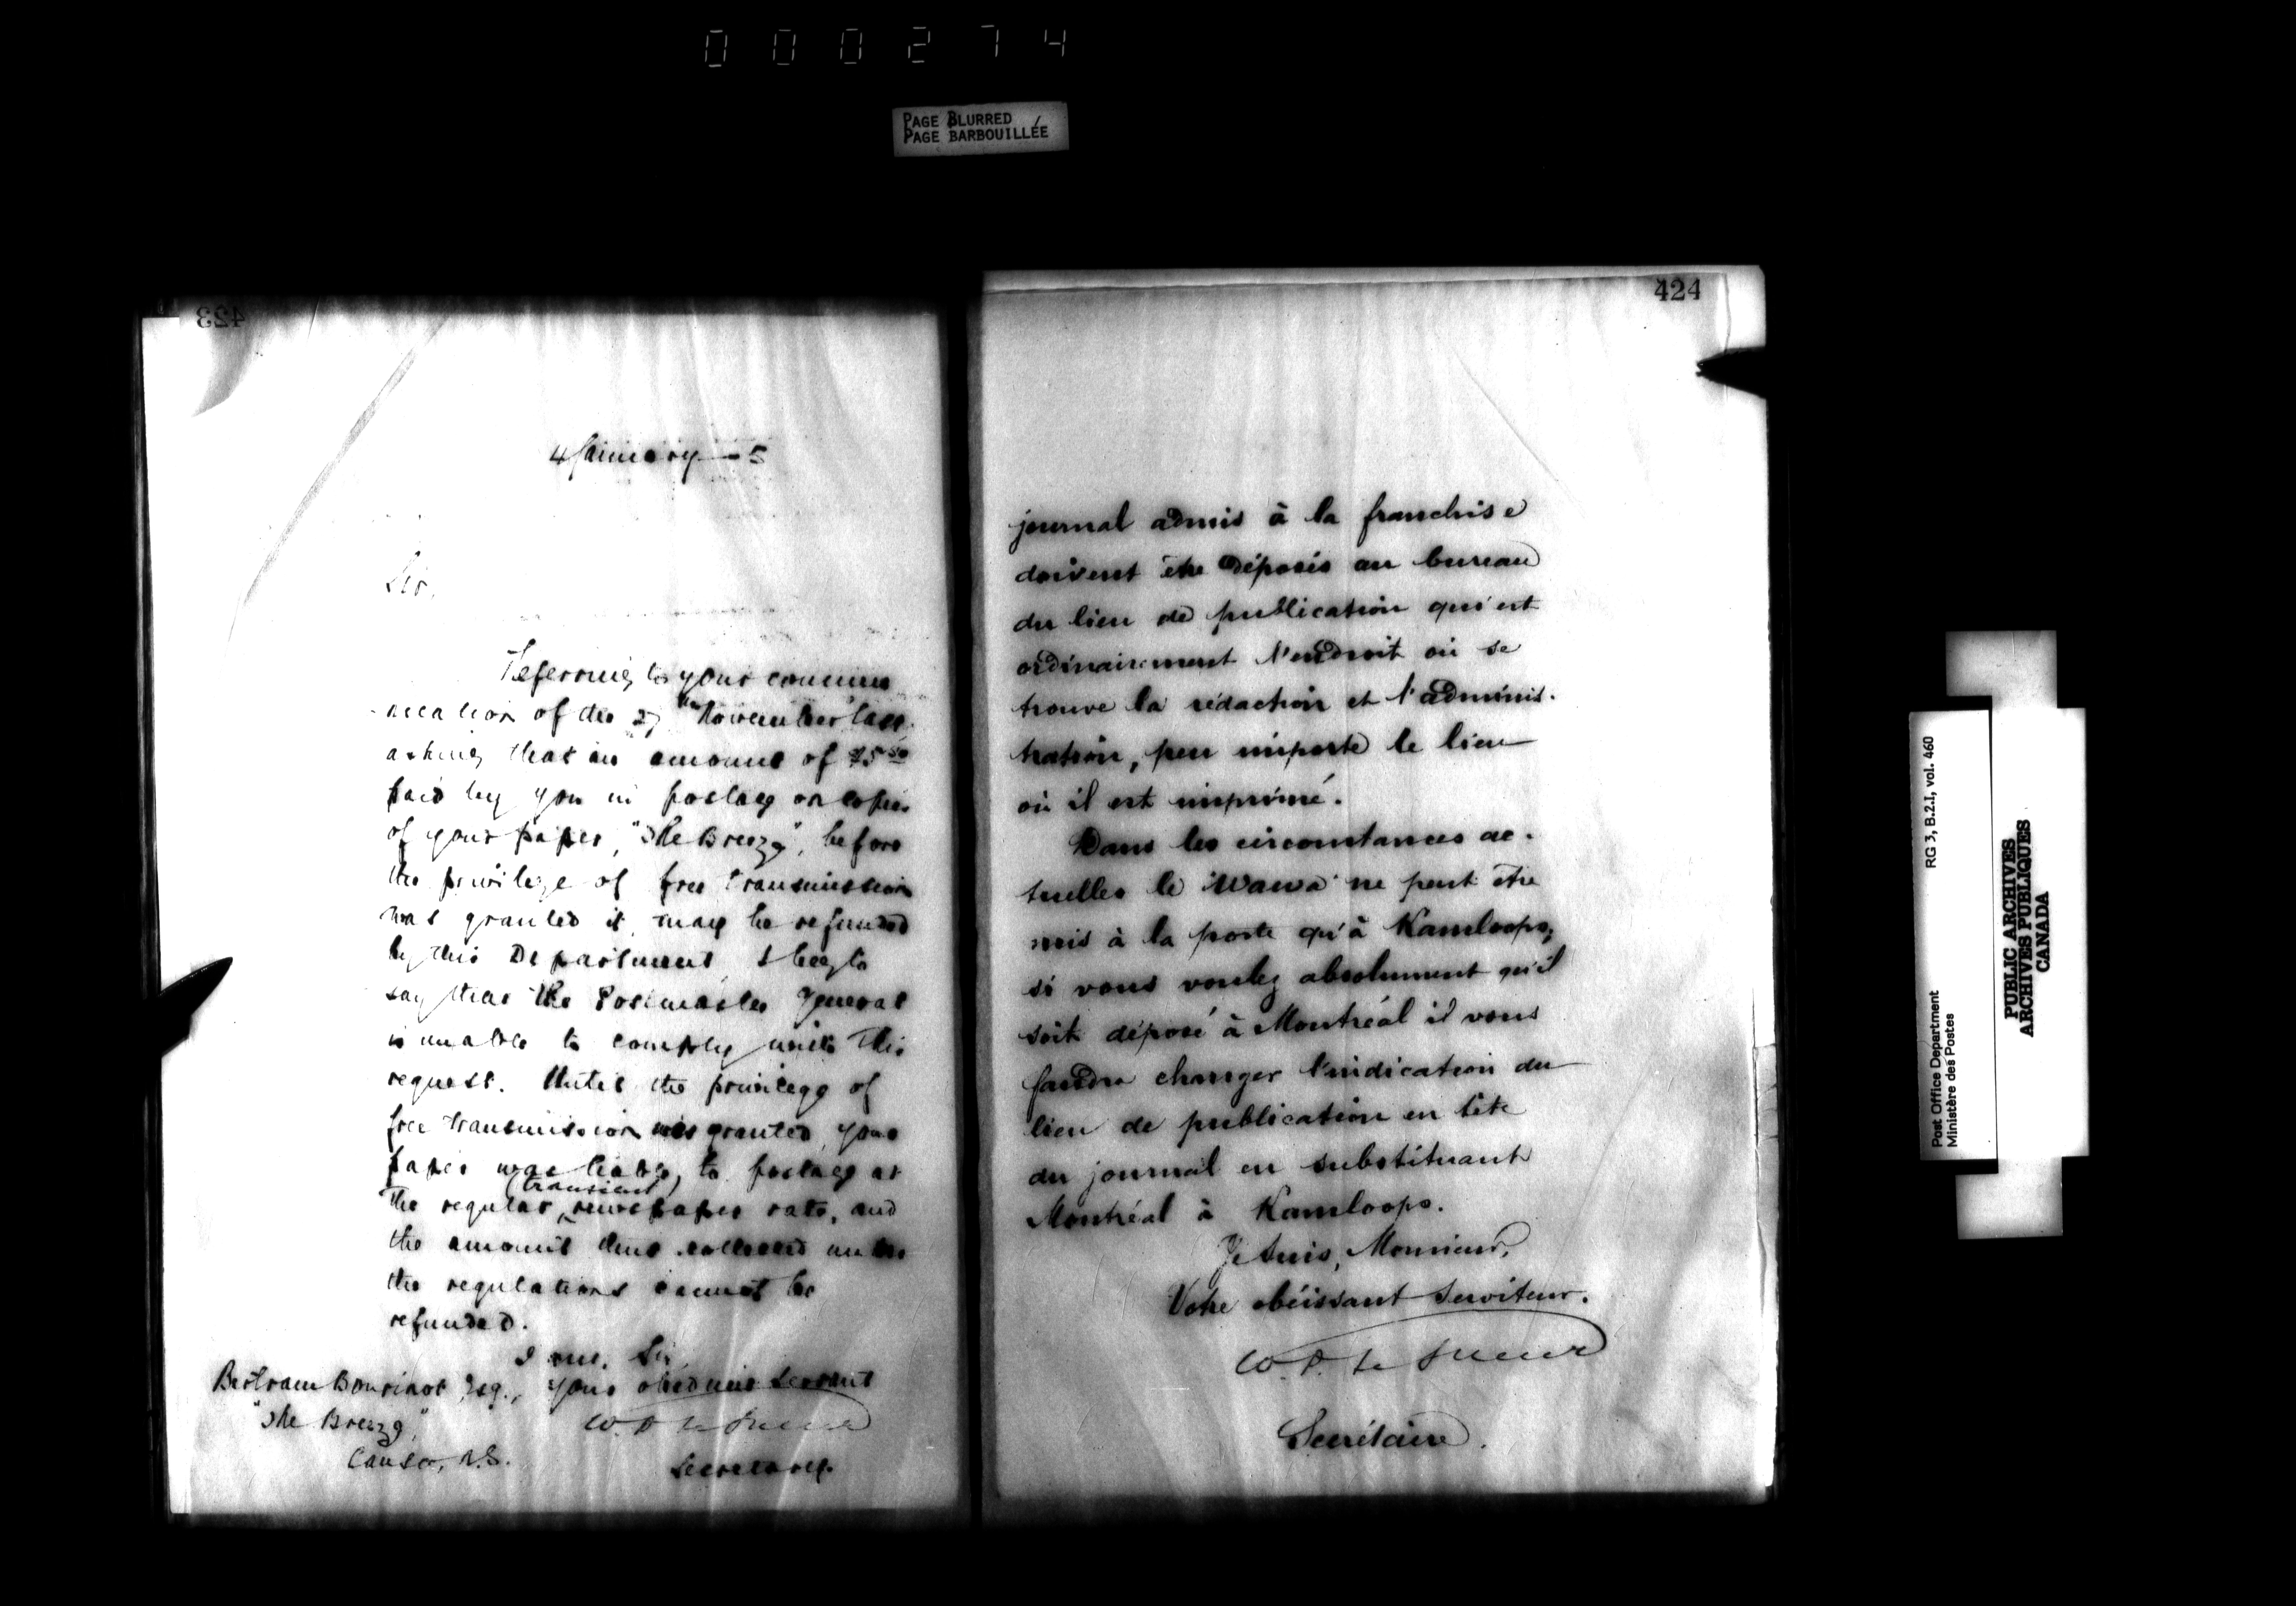 000274
PAGE BLURRED
PAGE BARBOUILLÉE
423
4 January 5
Sir,
Referring to your commu
nication of the 27th November last
asking that an amount of $5.50
paid by you in postage on copies
of your paper, "The Breeze", before
the privilege of free transmission
was granted it, may be refunded
by this Department, I beg to
say that the Postmaster General
is unable to comply with this
request. Until the privilege of
free transmission was granted, your
paper was liable, to postage at
the regular (transient) newspaper rate, and
the amount thus collected under
the regulations cannot be
refunded.
I am, Sir,
Your obedient Servant
W. D. Le Sueur
Secretary.
Bertram Bourinot Esq.,
"The Breeze,"
Canso, N.S.
424
journal admis à la franchise
doivent être déposés au bureau
du lieu de publication qui est
ordinairement l'endroit où se
trouve la rédaction et l'adminis-
tration, peu importe le lieu
où il est imprimé.
Dans les circonstances ac-
tuelles le "Wawa" ne peut être
mis à la poste qu'à Kamloops;
si vous voulez absolument qu'il
soit déposé à Montréal il vous
faudra changer l'indication du
lieu de publication en tête
du journal en substituant
Montréal à Kamloops.
Je suis, Monsieur,
Votre obéissant Serviteur.
W. D. Le Sueur
Secrétaire.
Post Office Department
Ministère des Postes
RG 3, B.2.I, vol. 460
PUBLIC ARCHIVES
ARCHIVES PUBLIQUES
CANADA